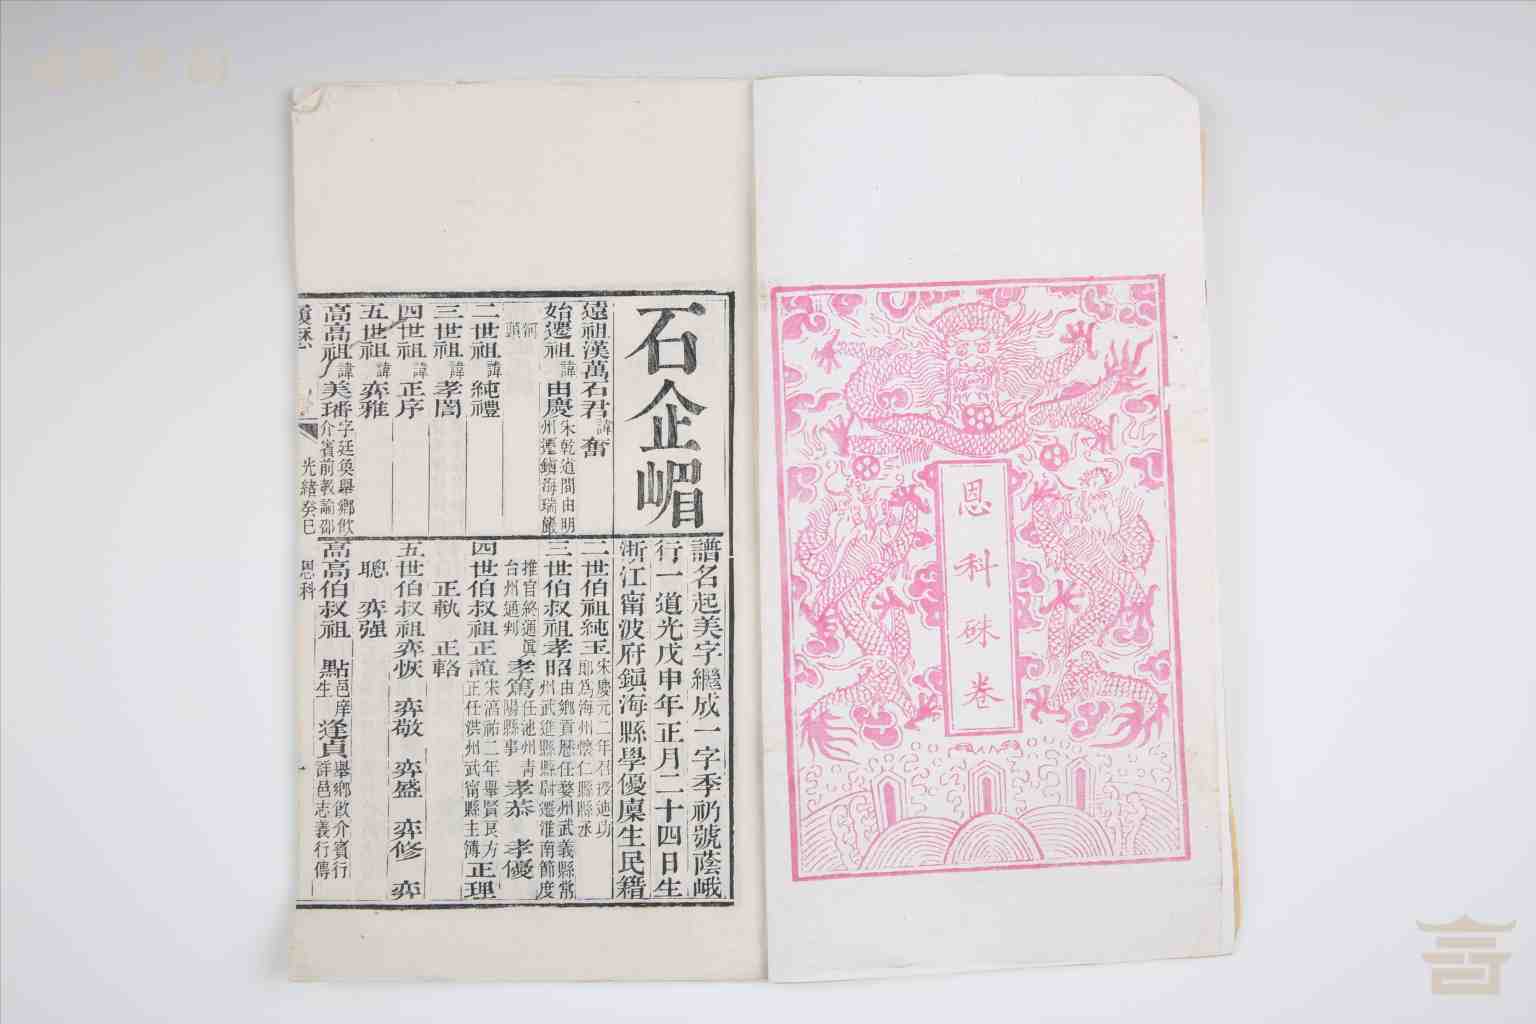 恩科硃卷
石企崏
譜名起美字繼成一字季礽號蔭峨
行一道光戊申年正月二十四日生
浙江甯波府鎮海縣學優廩生民籍
遠祖漢萬石君諱奮
始遷祖諱由慶宋乾道間由明
州遷鎮海瑞巖
河
頭
二世祖諱純禮
三世祖諱孝閏
四世祖諱正序
五世祖諱弈雅
高高祖諱美璠字廷奐舉鄉飲
介賓前教諭邵
二世伯祖純玉宋慶元二年召授迪功
郎為海州懷仁縣縣丞
三世伯叔祖孝昭由鄉貢歷任婺州武義縣常
州武進縣縣尉遷淮南節度
推官終通眞
台州通判
孝篤任池州青
陽縣事
孝恭 孝優
四世伯叔祖正誼宋淳祐二年舉賢良方
正任洪州武甯縣主簿
正理
正軌 正輅
五世伯叔祖弈恢 弈敬 弈盛 弈修 弈
聰 弈强
高高伯叔祖 點邑庠
生
逢貞舉鄉飲介賓行
詳邑志義行傳
光緒癸巳 恩科